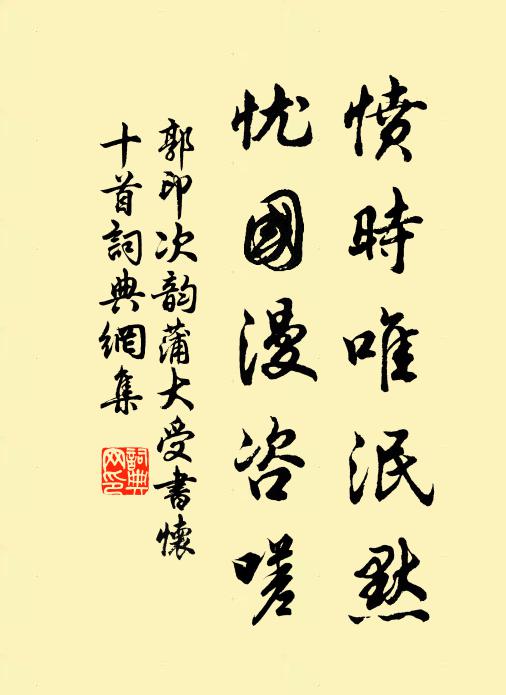 憤時唯泯默
忧國漫咨嗟
郭印次韵蒲大受書懷
十首詞典網集
詞典
网印